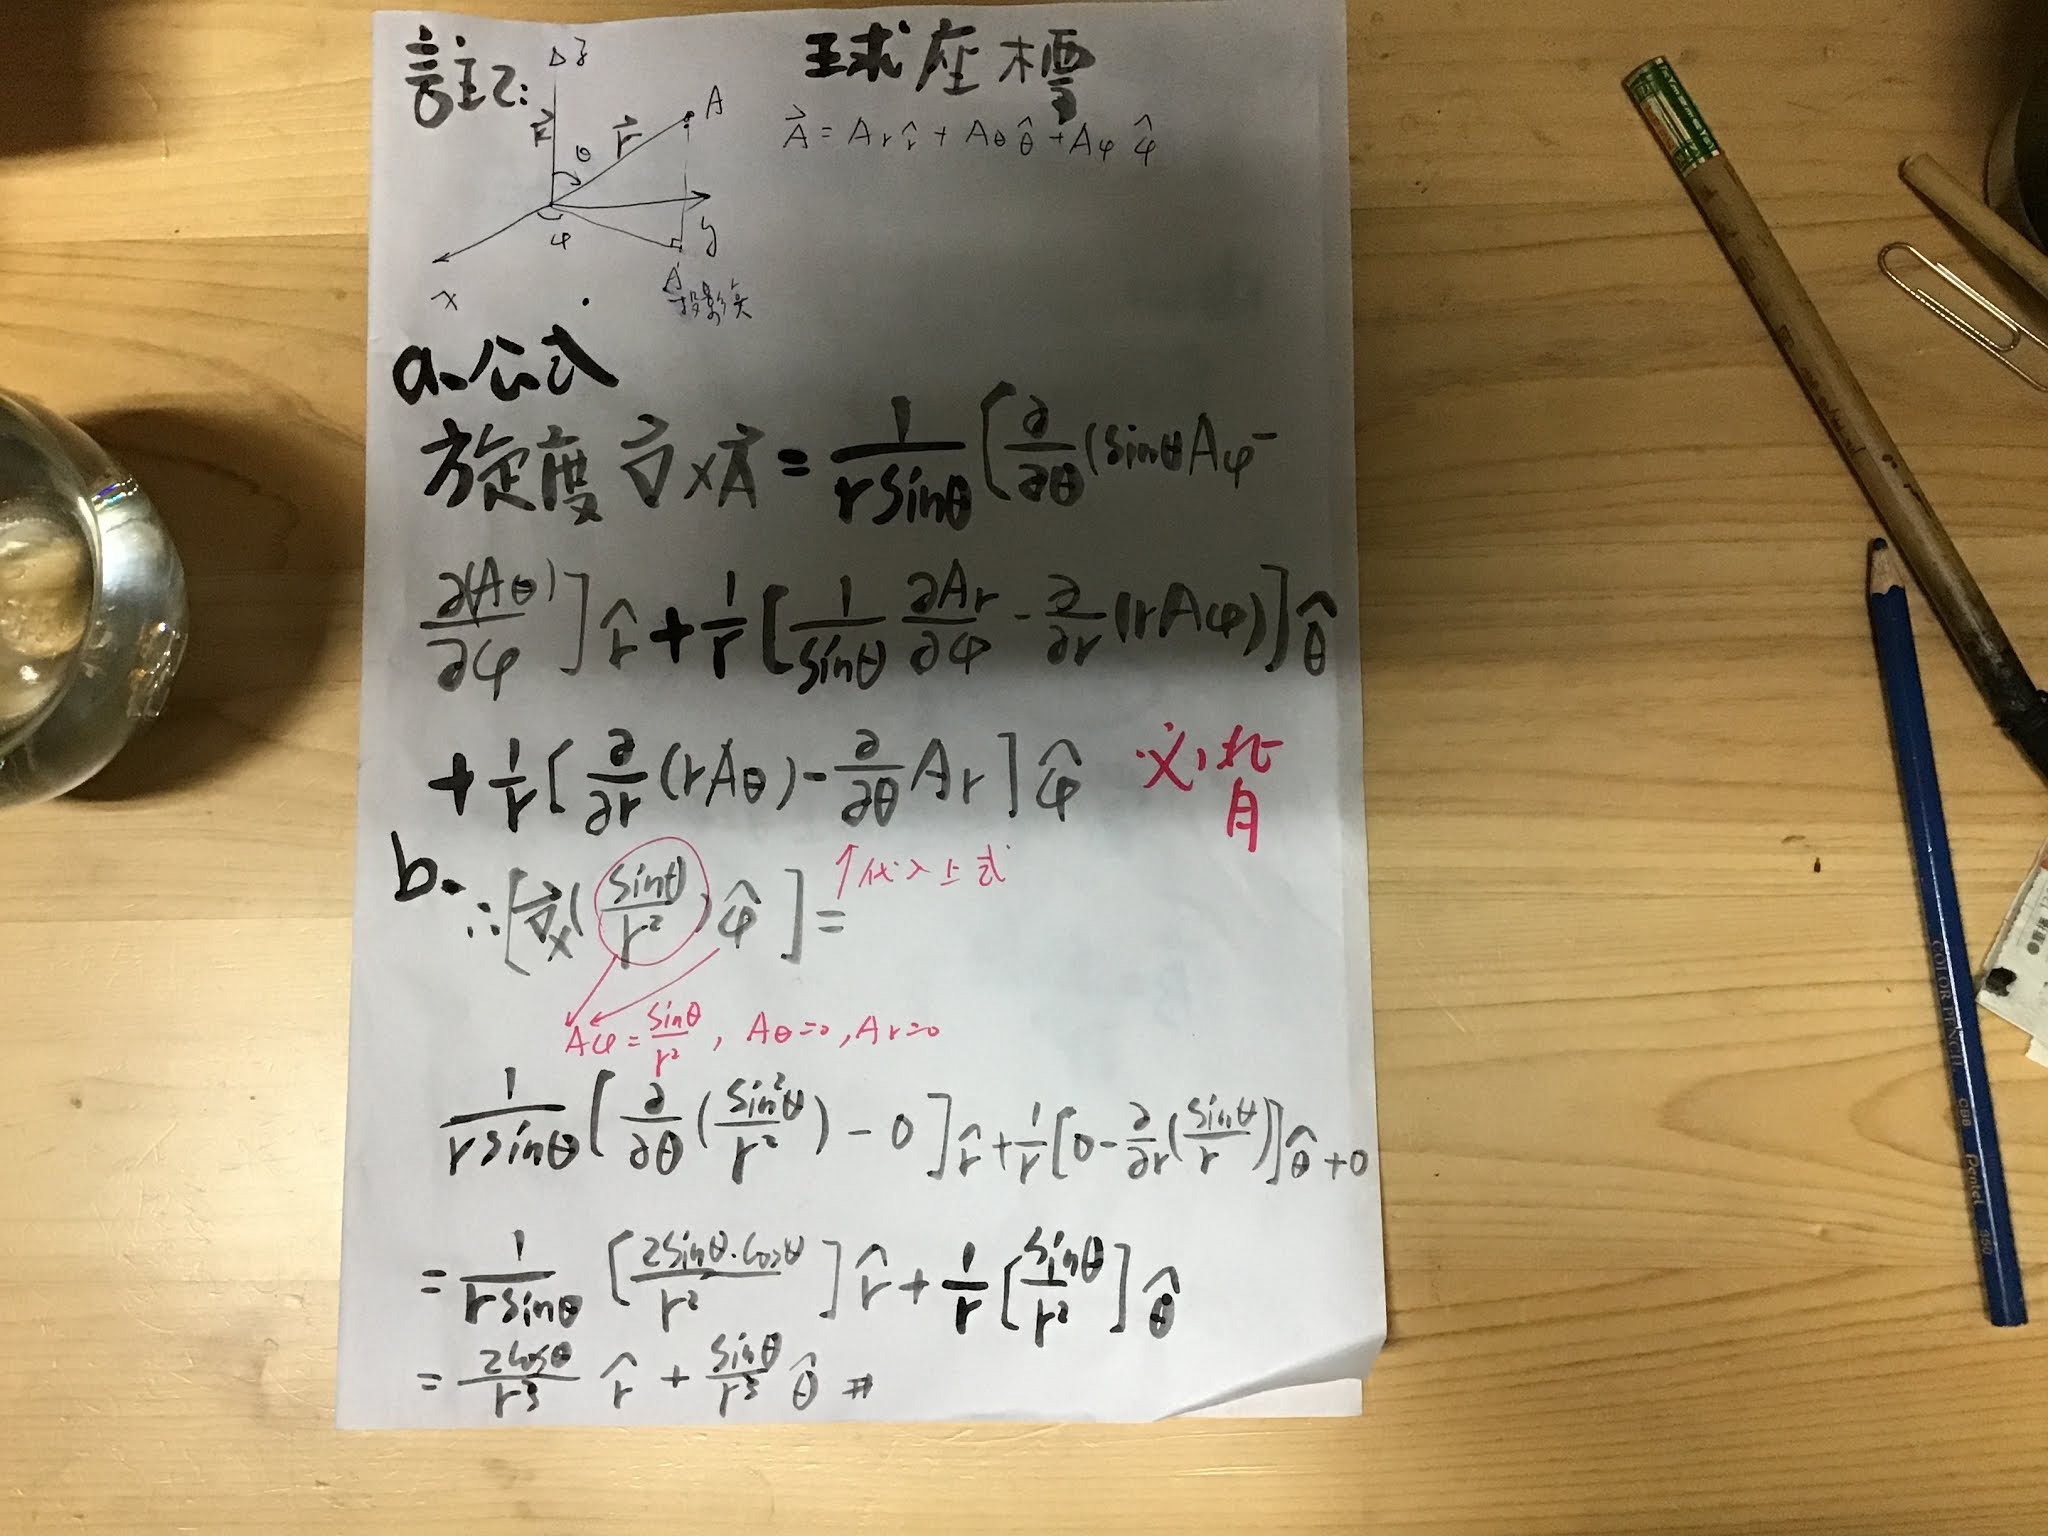 註2: 球座標
z
k⃗ θ r⃗ A
A⃗ = Ar r̂ + Aθ θ̂ + Aφ φ̂
φ y
x A' 投影矢
a. 公式
旋度 ∇⃗×A⃗ = 1/(r sinθ) [∂/∂θ (sinθ Aφ -
∂(Aθ)/∂φ] r̂ + 1/r [1/sinθ ∂Ar/∂φ - ∂/∂r (rAφ)] θ̂
+ 1/r [∂/∂r (rAθ) - ∂/∂θ Ar] φ̂ 必背
b. ∴[∇⃗×(sinθ/r²) φ̂] = ↑代入上式
Aφ = sinθ/r², Aθ=0, Ar=0
1/(r sinθ) [∂/∂θ (sin²θ/r²) - 0] r̂ + 1/r [0 - ∂/∂r (sinθ/r)] θ̂ + 0
= 1/(r sinθ) [2sinθ·cosθ/r²] r̂ + 1/r [sinθ/r²] θ̂
= 2cosθ/r³ r̂ + sinθ/r³ θ̂ #
COLOR PENCIL CBB Pentel